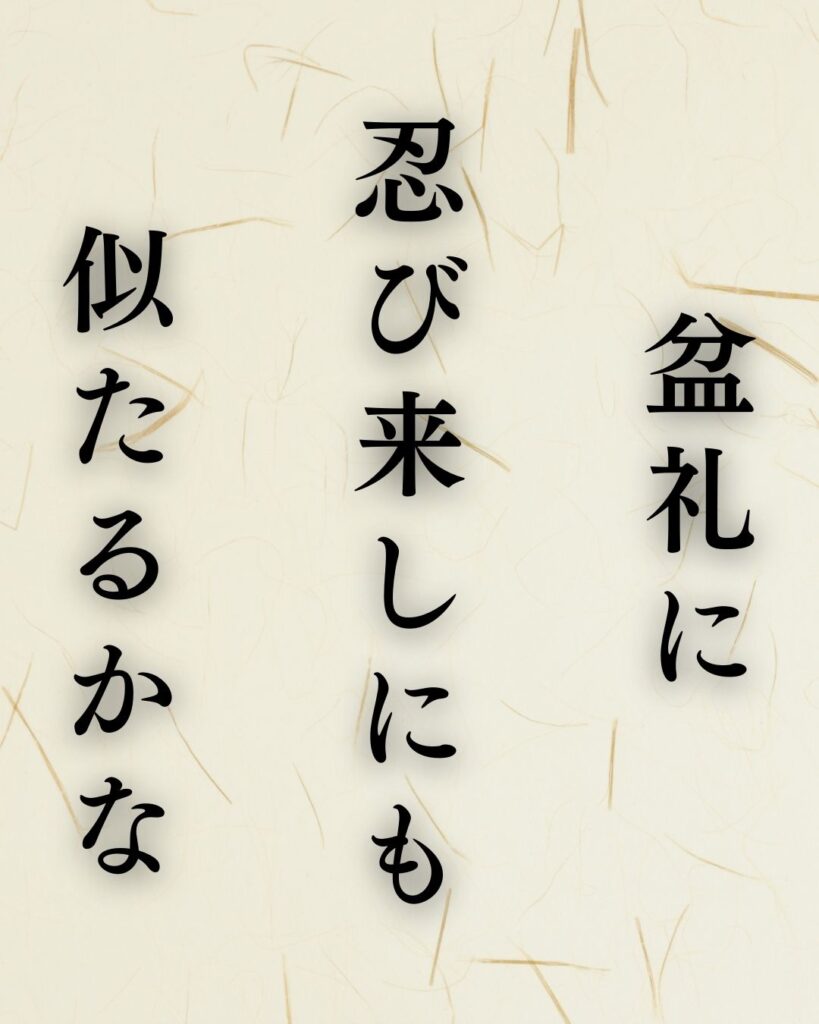 盆礼に
忍び来しにも
似たるかな